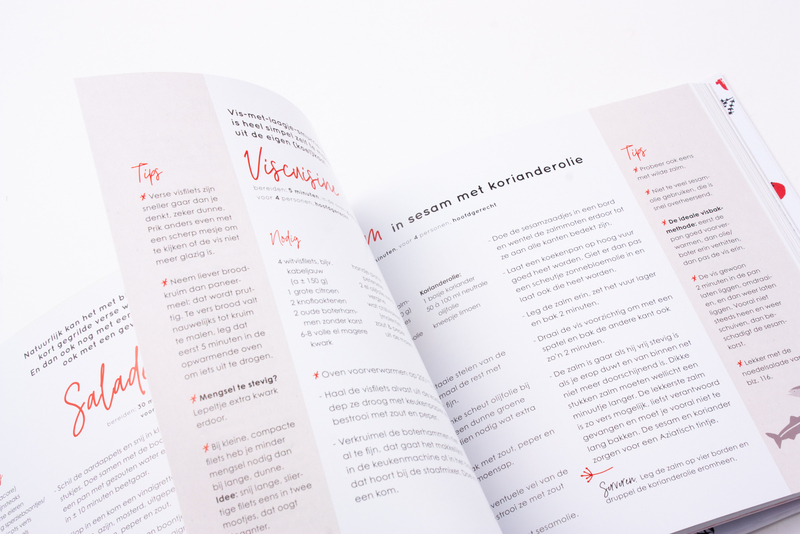 Natuurlijk kan het met b
kort gegrilde verse
En dan ook nog met een
ook met een gev
Salad
bereiden: 30
- Schil de aardappels en snij in kl
stukjes. Doe samen met de boo
een pan met gezouten water
in ± 10 minuten beetgaar.
op in een kom een vinaigre
azijn, mosterd, uitgepe
peper en zout.
Tips
* Verse visfilets zijn
sneller gaar dan je
denkt, zeker dunne.
Prik anders even met
een scherp mesje om
te kijken of de vis niet
meer glazig is.
* Neem liever brood-
kruim dan paneer-
meel: dat wordt prut-
tig. Te vers brood valt
nauwelijks tot kruim
te malen, leg dat
eerst 5 minuten in de
opwarmende oven
om iets uit te drogen.
* Mengsel te stevig?
Lepeltje extra kwark
erdoor.
* Bij kleine, compacte
filets heb je minder
mengsel nodig dan
bij lange, dunne.
Idee: snij lange, slier-
tige filets eens in twee
mootjes, dat oogt
Vis-met-laagje-
is heel simpel zelf te
uit de eigen
Viscuisine
bereiden: 5 minuten,
voor 4 personen,
Nodig
4 witvisfilets, bijv.
kabeljauw
(a ± 150 g)
1 grote citroen
2 knoflooktenen
2 oude boterham
men zonder korst
6-8 volle el magere
kwark
* Oven voorverwarmen op
- Haal de visfilets
dep ze droog met keuken
bestrooi met zout en peper.
- Verkruimel de boterham
al te fijn, dat gaat het makk
in de keukenmachine of in
dat hoort bij de staafmixer. Do
een kom.
m in sesam met korianderolie
minuten, voor 4 personen, hoofdgerecht
Korianderolie:
1 bosje koriander
50 á 100 ml neutrale
olijfolie
kneepje limoen
taaie stelen van de
maal de rest met
ke scheut olijfolie bij
een dunne groene
ien nodig wat extra
ak met zout, peper en
moensap.
ventuele vel van de
strooi ze met zout
f sesamolie,
- Doe de sesamzaadjes in een bord
en wentel de zalmmoten erdoor tot
ze aan alle kanten bedekt zijn.
- Laat een koekenpan op hoog vuur
goed heet worden. Giet er dan pas
een scheutje zonnebloemolie in en
laat ook die heet worden.
- Leg de zalm erin, zet het vuur lager
en bak 2 minuten.
- Draai de vis voorzichtig met een
spatel en bak de andere kant ook
zo'n 2 minuten.
- De zalm is gaar als hij vrij stevig is
als je erop duwt en van binnen net
niet meer doorschijnend is. Dikke
stukken zalm moeten wellicht een
minuutje langer. De lekkerste zalm
is zo vers mogelijk, liefst verantwoord
gevangen en moet je vooral niet te
lang bakken. De sesam en koriander
zorgen voor een Aziatisch tintje.
Serveren: Leg de zalm op vier borden en
druppel de korianderolie eromheen.
Tips
* Probeer ook eens
met wilde zalm.
* Niet te veel sesam-
olie gebruiken, die is
snel overheersend.
* De ideale visbak-
methode: eerst de
pan goed voorver-
warmen, dan olie/
boter erin verhitten,
dan pas de vis erin.
* De vis gewoon
2 minuten in de pan
laten liggen, omdraai-
en, en dan weer laten
liggen. Vooral niet
steeds heen en weer
schuiven, dan be-
schadigt de sesam-
korst.
* Lekker met de
noedelsalade van
blz. 116.